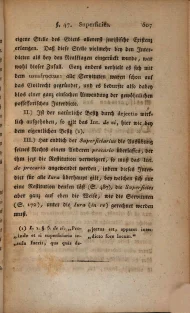 §. 47. Superficies. 807
eigene Stelle des Eides unserer juristische Existenz
erlangen. Daß diese Stelle vielmehr bey den Interdicten
als bey den Klagen eingeräumt wurde, war
wohl bloßer Zufall. Ganz anders verhielt es sich mit
dem ususfructus: alle Servituten waren schon auf
das Civilrecht gegründet, und es bedurfte also dabey
blos der einfachen Anwendung der gewöhnlichen
possessorischen Interdicte.
II.) Ist der natürliche Besitz durch dejectio wirklich
aufgehoben, so gilt das Int. de vi, hier wie bey
dem eigentlichen Besitz (1).
III.) Hat endlich der Superficiarius die Ausübung
seines Rechts einem Anderen precario überlassen, der
ihm jetzt die Restitution verweigert, so muß das Int.
de precario angewendet werden, indem dieses überhaupt
für alle Iura überhaupt gilt, bey welchen sich nur
eine Restitution denken läßt (S. 487), die Superficies
aber ganz auf eben die Weise, wie die Servituten
(S. 170), unter die Iura (in re) gerechnet werden
muß.
(1) L. 1. §. 5. de vi.